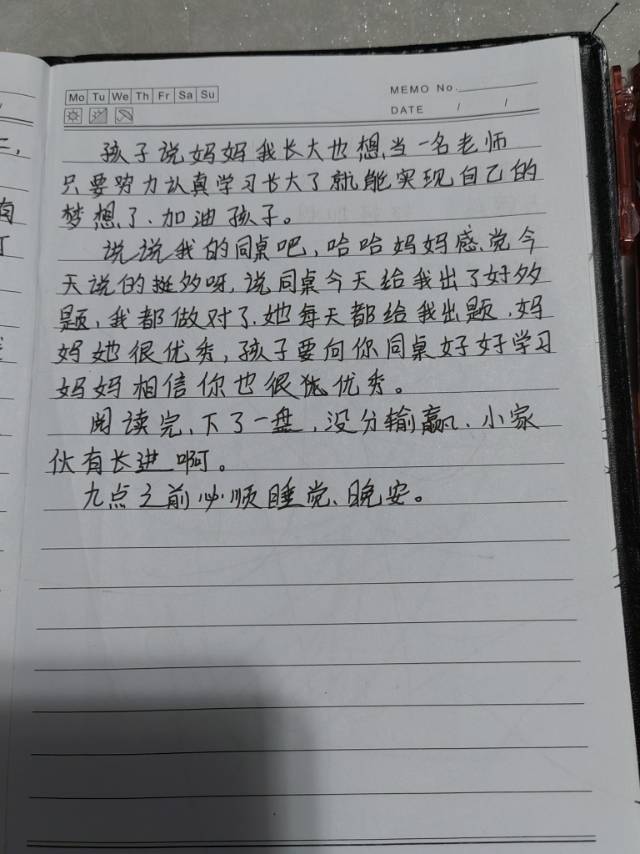 Mo Tu We Th Fr Sa Su
MEMO No.
DATE / /
孩子说妈妈我长大也想当一名老师
只要努力认真学习长大了就能实现自己的
梦想了、加油孩子。
说说我的同桌吧，哈哈妈妈感觉今
天说的挺多呀，说同桌今天给我出了好多
题，我都做对了、她每天都给我出题，妈
妈她很优秀，孩子要向你同桌好好学习
妈妈相信你也很优秀。
阅读完、下了一盘，没分输赢、小家
伙有长进啊。
九点之前必须睡觉、晚安。